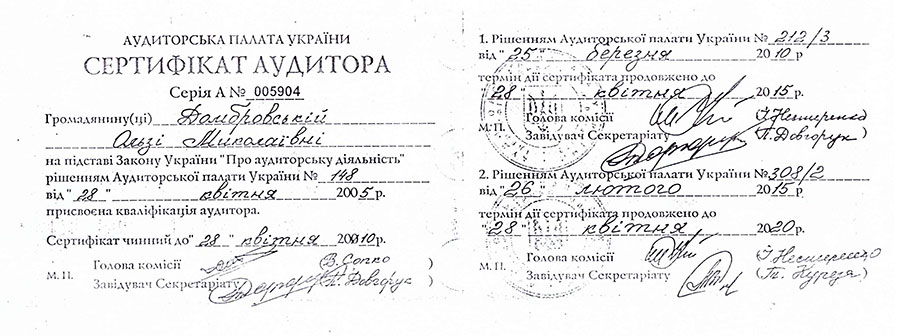 АУДИТОРСЬКА ПАЛАТА УКРАЇНИ
СЕРТИФІКАТ АУДИТОРА
Серія А № 005904
Громадянину(ці) Домбровській
Ользі Миколаївні
на підставі Закону України "Про аудиторську діяльність"
рішенням Аудиторської палати України № 148
від "28" квітня 2005 р.
присвоєна кваліфікація аудитора.
Сертифікат чинний до "28" квітня 20010 р.
Голова комісії (В. Сопко)
М. П.
Завідувач Секретаріату (П. Довгорук)
1. Рішенням Аудиторської палати України № 212/3
від "25" березня 2010 р
термін дії сертифіката продовжено до
"28" квітня 2015 р.
Голова комісії (І Нестеренко
М. П.
Завідувач Секретаріату (П. Довгорук)
2. Рішенням Аудиторської палати України № 308/2
від "26" лютого 2015 р
термін дії сертифіката продовжено до
"28" квітня 2020 р.
Голова комісії (І Нестеренко
М. П.
Завідувач Секретаріату (П.